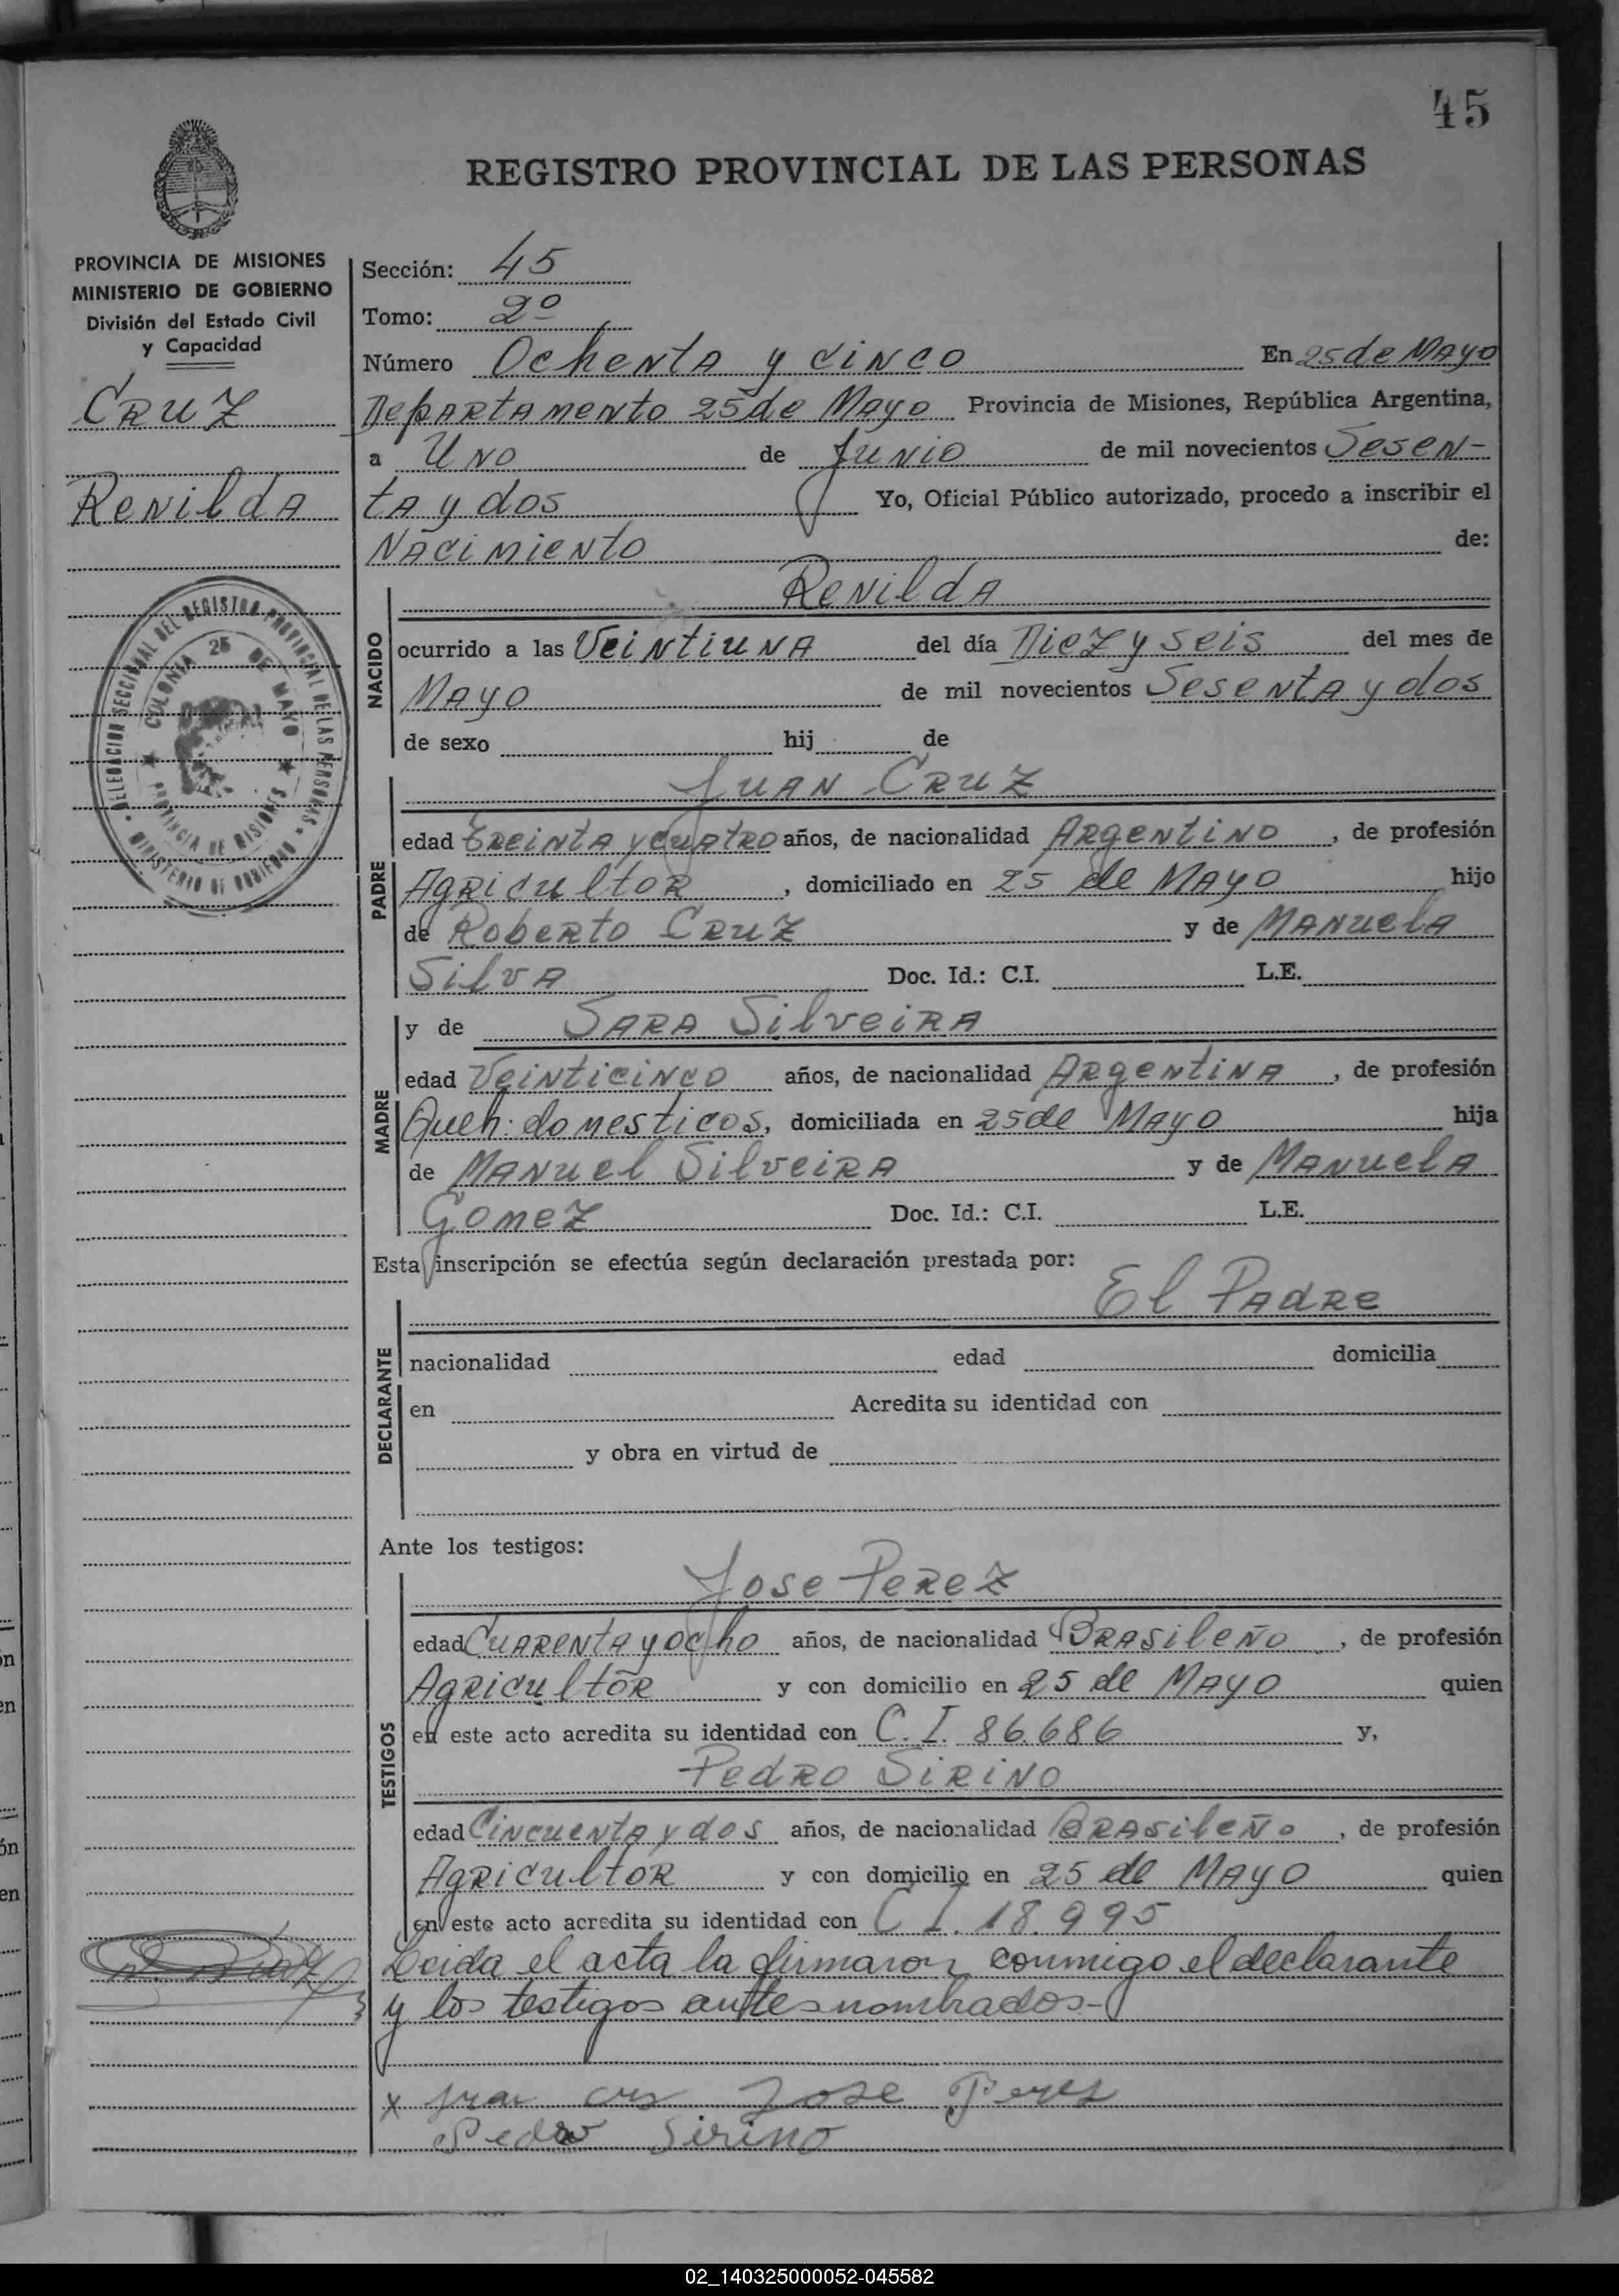 45
REGISTRO PROVINCIAL DE LAS PERSONAS
PROVINCIA DE MISIONES
MINISTERIO DE GOBIERNO
División del Estado Civil
y Capacidad
CRUZ
Renilda
DELEGACION SECCIONAL DEL REGISTRO PROVINCIAL DE LAS PERSONAS
COLONIA 25 DE MAYO
PROVINCIA DE MISIONES
MINISTERIO DE GOBIERNO
Sección: 45
Tomo: 2º
Número Ochenta y cinco En 25 de Mayo
Departamento 25 de Mayo Provincia de Misiones, República Argentina,
a Uno de Junio de mil novecientos Sesen-
ta y dos Yo, Oficial Público autorizado, procedo a inscribir el
Nacimiento de:
Renilda
NACIDO
ocurrido a las Veintiuna del día Diez y seis del mes de
Mayo de mil novecientos Sesenta y dos
de sexo hij de
Juan Cruz
PADRE
edad Treinta y cuatro años, de nacionalidad Argentino, de profesión
Agricultor, domiciliado en 25 de Mayo hijo
de Roberto Cruz y de Manuela
Silva Doc. Id.: C.I. L.E.
y de Sara Silveira
MADRE
edad Veinticinco años, de nacionalidad Argentina, de profesión
Queh. domesticos, domiciliada en 25 de Mayo hija
de Manuel Silveira y de Manuela
Gomez Doc. Id.: C.I. L.E.
Esta inscripción se efectúa según declaración prestada por:
El Padre
DECLARANTE
nacionalidad edad domicilia
en Acredita su identidad con
y obra en virtud de
Ante los testigos:
Jose Perez
TESTIGOS
edad Cuarenta y ocho años, de nacionalidad Brasileño, de profesión
Agricultor y con domicilio en 25 de Mayo quien
en este acto acredita su identidad con C.I. 86.686 y,
Pedro Sirino
edad Cincuenta y dos años, de nacionalidad Brasileño, de profesión
Agricultor y con domicilio en 25 de Mayo quien
en este acto acredita su identidad con C I. 18.995
Leida el acta la firmaron conmigo el declarante
y los testigos antes nombrados-
x Jose Perez
Pedro Sirino
02_140325000052-045582